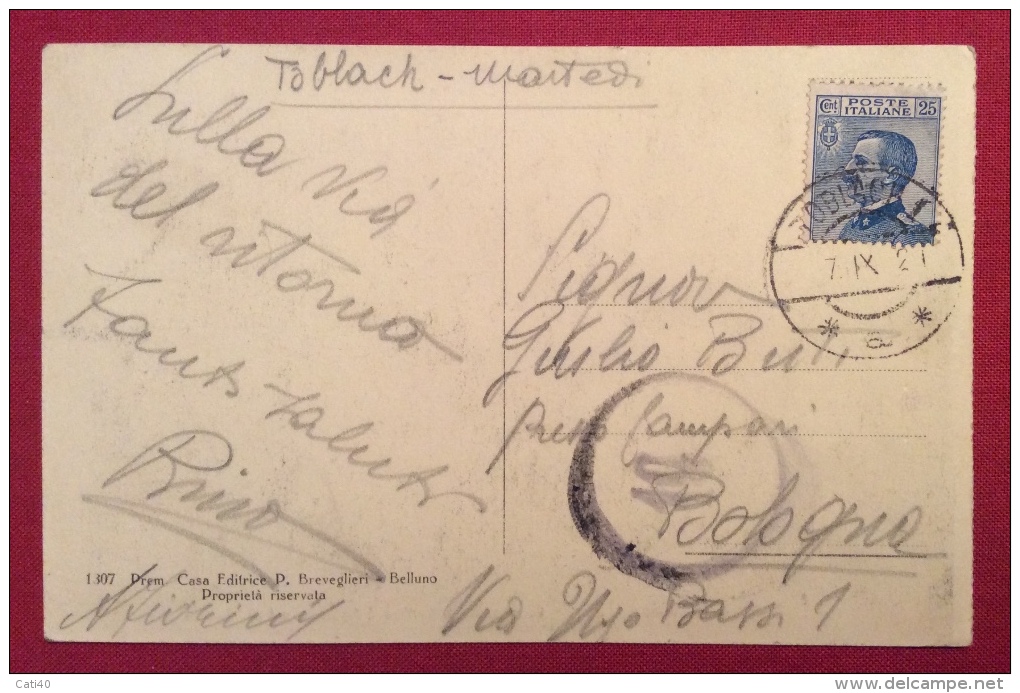 Toblach - Martedì
Sulla via
del ritorno
tanti saluti
Rino
Cent. POSTE ITALIANE 25
TOBLACH 1
7.IX 2
* a *
Signor
Giulio
presso Campari
Bologna
Via Ugo Bassi 1
1307 Prem. Casa Editrice P. Breveglieri - Belluno
Proprietà riservata
Cati40
delcampe.net